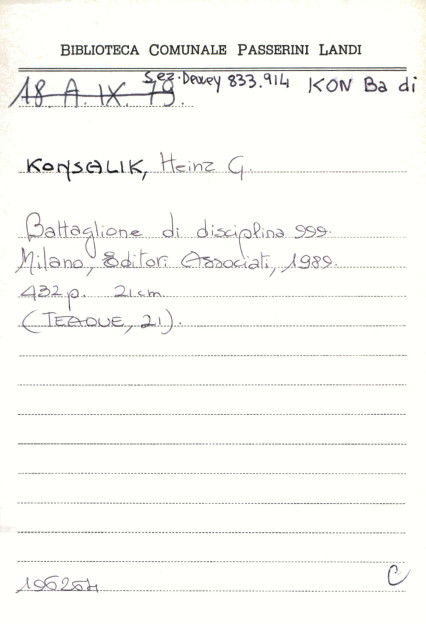 BIBLIOTECA COMUNALE PASSERINI LANDI
Sez. Dewey 833.914 KON Ba di
18 A. IX. 79.
KONSALIK, Heinz G.
Battaglione di disciplina 999.
Milano, Editori Associati, 1989.
432 p. 21 cm.
(TEADUE, 21).
C